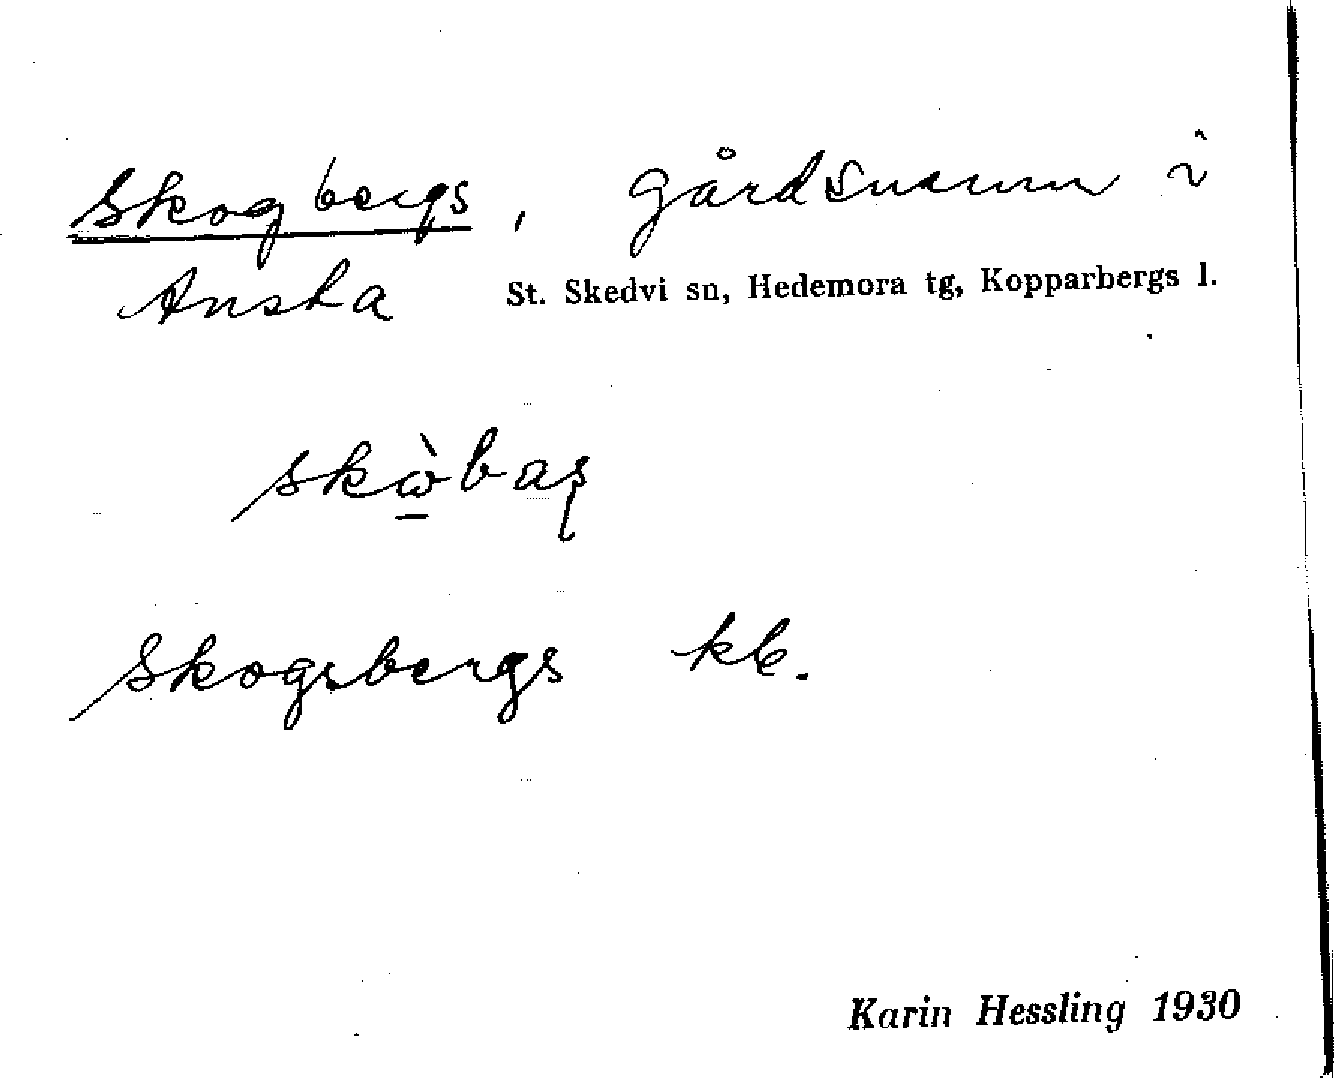 Skogbergs, gårdsnamn i
Ansta St. Skedvi sn, Hedemora tg, Kopparbergs l.
skὼbaş
Skogsbergs kb.
Karin Hessling 1930